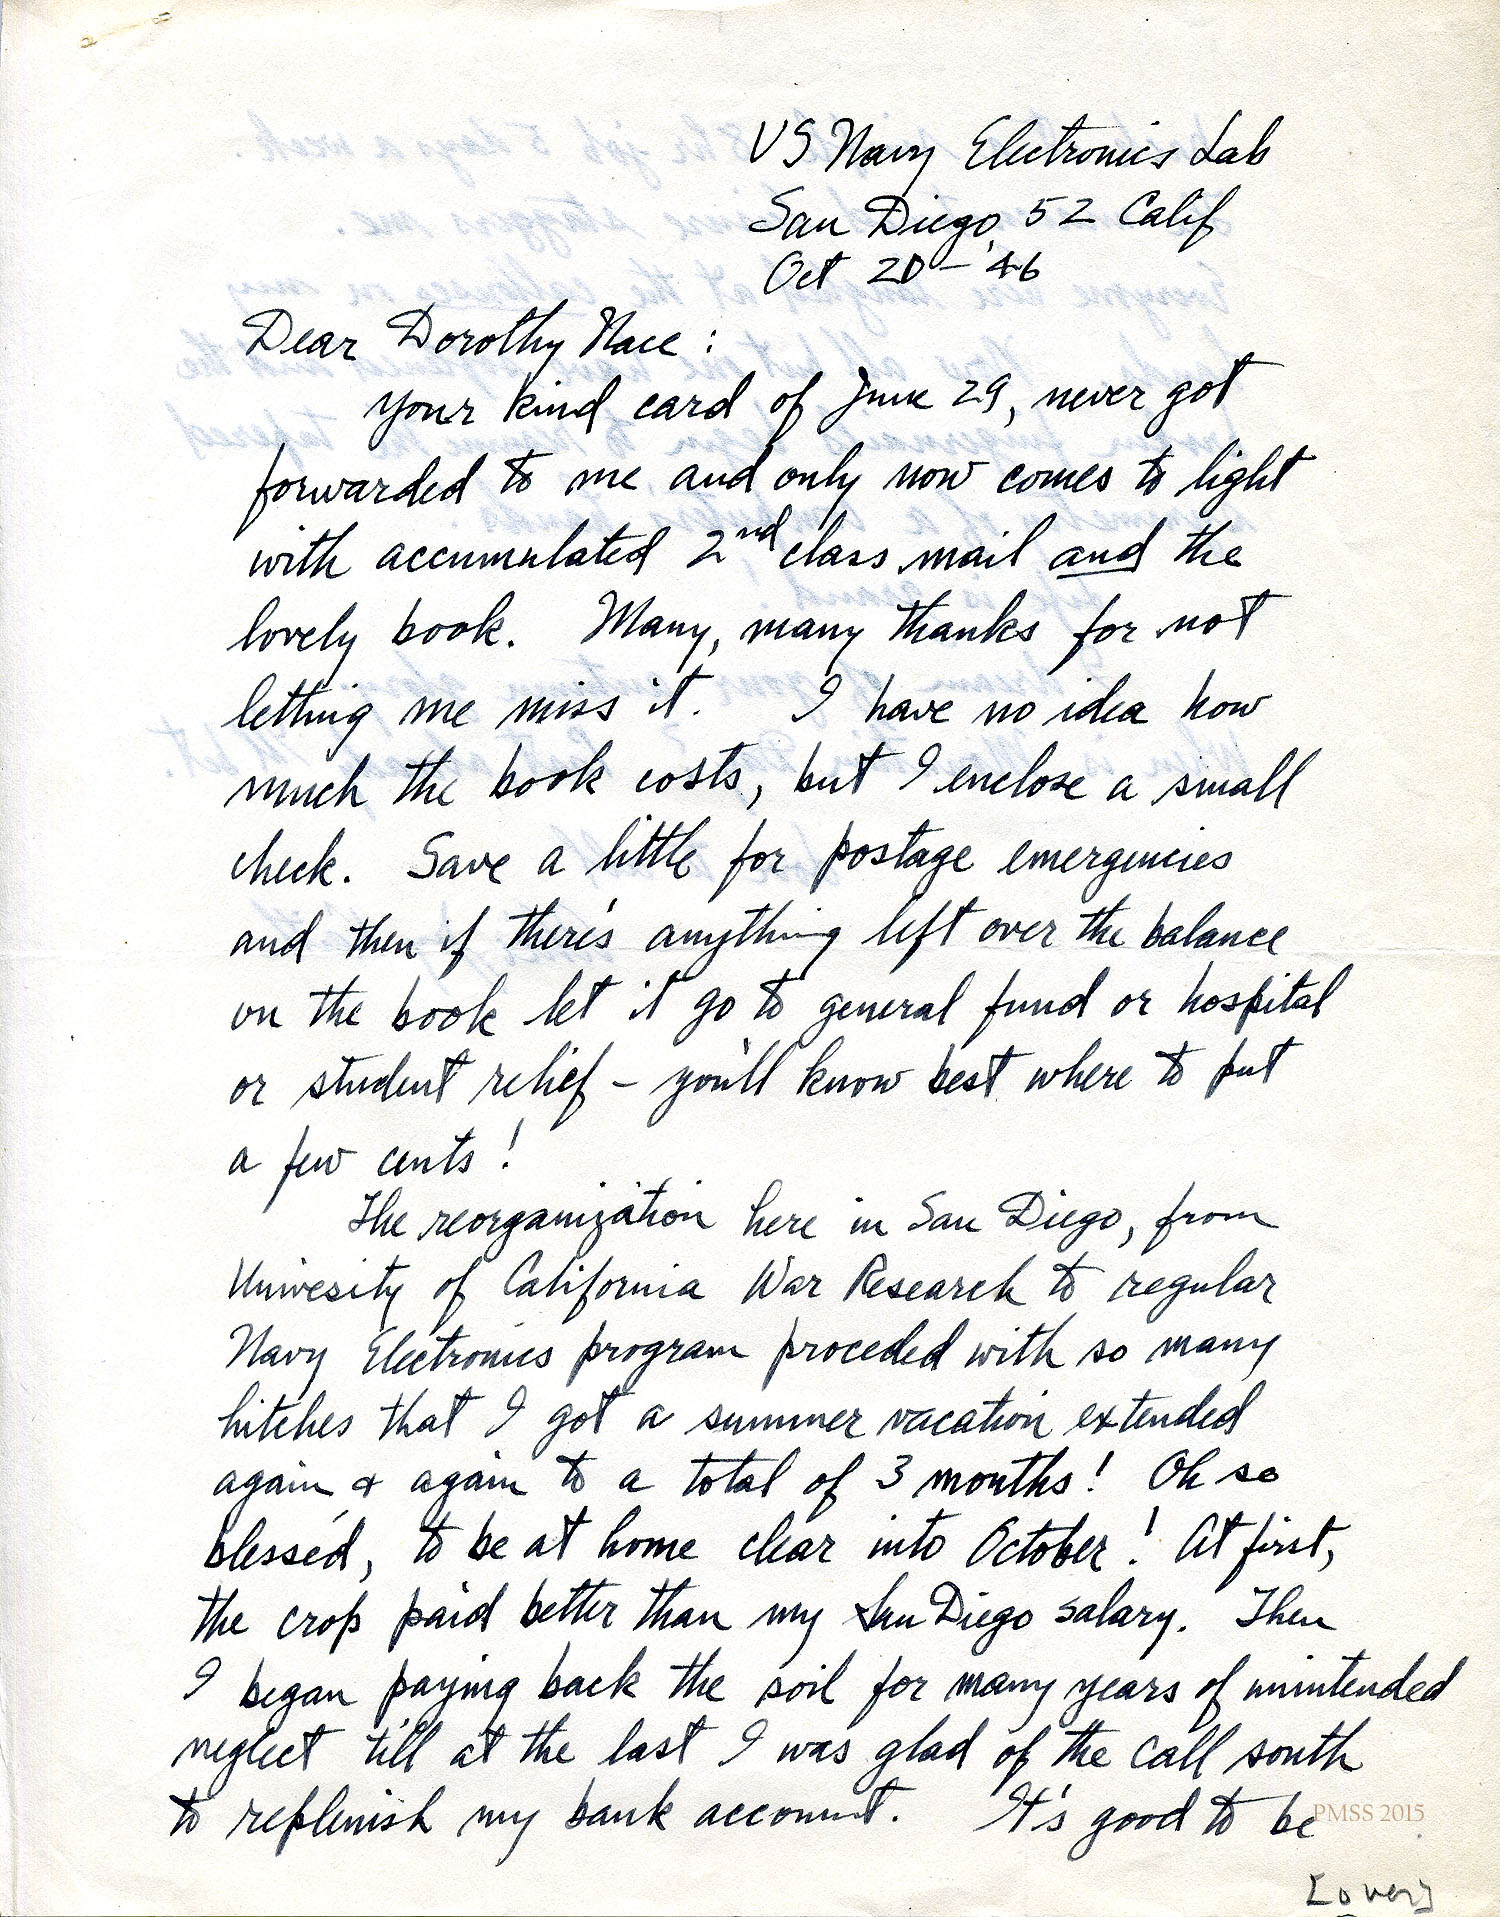 US Navy Electronics Lab
San Diego, 52 Calif
Oct 20 - '46
Dear Dorothy Nace:
Your kind card of June 29, never got
forwarded to me and only now comes to light
with accumulated 2nd class mail and the
lovely book. Many, many thanks for not
letting me miss it. I have no idea how
much the book costs, but I enclose a small
check. Save a little for postage emergencies
and then if there's anything left over the balance
on the book let it go to general fund or hospital
or student relief - you'll know best where to put
a few cents!
The reorganization here in San Diego, from
Univesity of California War Research to regular
Navy Electronics program proceded with so many
hitches that I got a summer vacation extended
again & again to a total of 3 months! Oh so
blessed, to be at home clear into October! At first,
the crop paid better than my San Diego salary. Then
I began paying back the soil for many years of unintended
neglect till at the last I was glad of the call south
to replenish my bank account. It's good to be
PMSS 2015
[over]